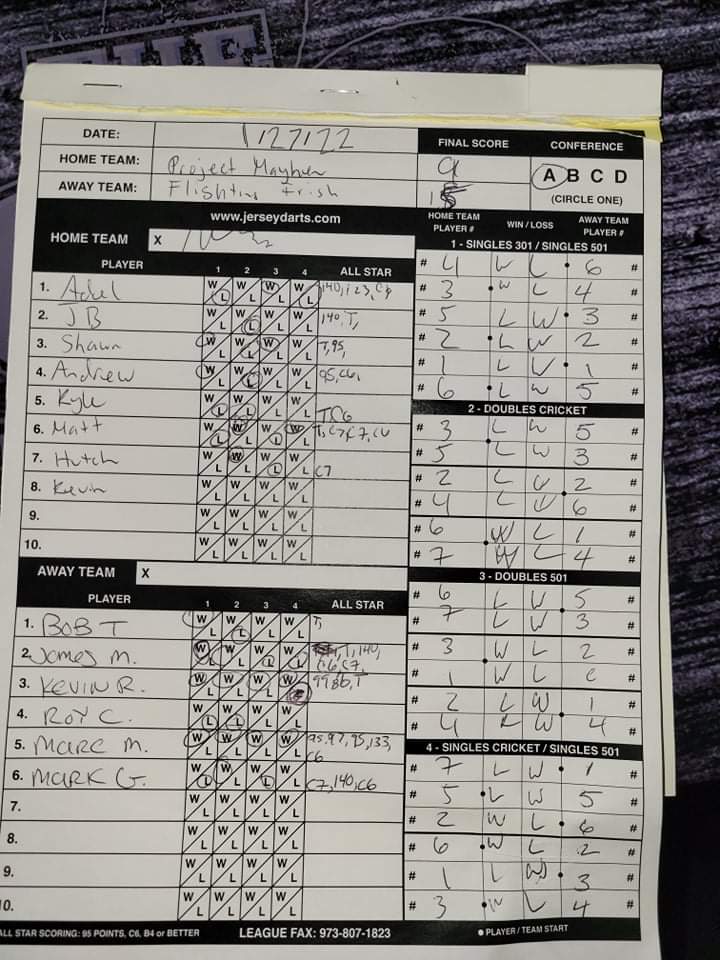 DATE: 1/27/22 FINAL SCORE CONFERENCE
HOME TEAM: Project Mayhem 9 A B C D
AWAY TEAM: Flighting Irish (CIRCLE ONE)
www.jerseydarts.com HOME TEAM PLAYER # WIN / LOSS AWAY TEAM PLAYER #
HOME TEAM X
1 - SINGLES 301 / SINGLES 501
# 4 W L 6 #
# 3 W L 4 #
# 5 L W 3 #
# 2 L W 2 #
# 1 L W 1 #
# 6 L W 5 #
2 - DOUBLES CRICKET
# 3 L W 5 #
# 5 L W 3 #
# 2 L W 2 #
# 4 L W 6 #
# 6 W L 1 #
# 7 W L 4 #
3 - DOUBLES 501
# 6 L W 5 #
# 7 L W 3 #
# 3 W L 2 #
# 1 W L #
# 2 L W 1 #
# 4 L W 4 #
4 - SINGLES CRICKET / SINGLES 501
# 7 L W 1 #
# 5 L W 5 #
# 2 W L 6 #
# 6 W L 2 #
# 1 L W 3 #
# 3 W L 4 #
PLAYER 1 2 3 4 ALL STAR
1. Adel W L W L W L W L 140, 123, C6
2. JB W L W L W L W L 140, T,
3. Shawn W L W L W L W L T, 95,
4. Andrew W L W L W L W L 95, C6,
5. Kyle W L W L W L W L T C6
6. Matt W L W L W L W L T, C7, C7, C6
7. Hutch W L W L W L W L C7
8. Kevin W L W L W L W L
9. W L W L W L W L
10. W L W L W L W L
AWAY TEAM X
PLAYER 1 2 3 4 ALL STAR
1. BOB T W L W L W L W L T,
2. James M. W L W L W L W L T, 140,
C6, C7,
3. KEVIN R. W L W L W L W L
4. ROY C. W L W L W L W L
5. MARC M. W L W L W L W L 95, 97, 95, 133,
C6
6. MARK G. W L W L W L W L C7, 140, C6
7. W L W L W L W L
8. W L W L W L W L
9. W L W L W L W L
10. W L W L W L W L
ALL STAR SCORING: 95 POINTS, C6, B4 or BETTER LEAGUE FAX: 973-807-1823 ● PLAYER / TEAM START